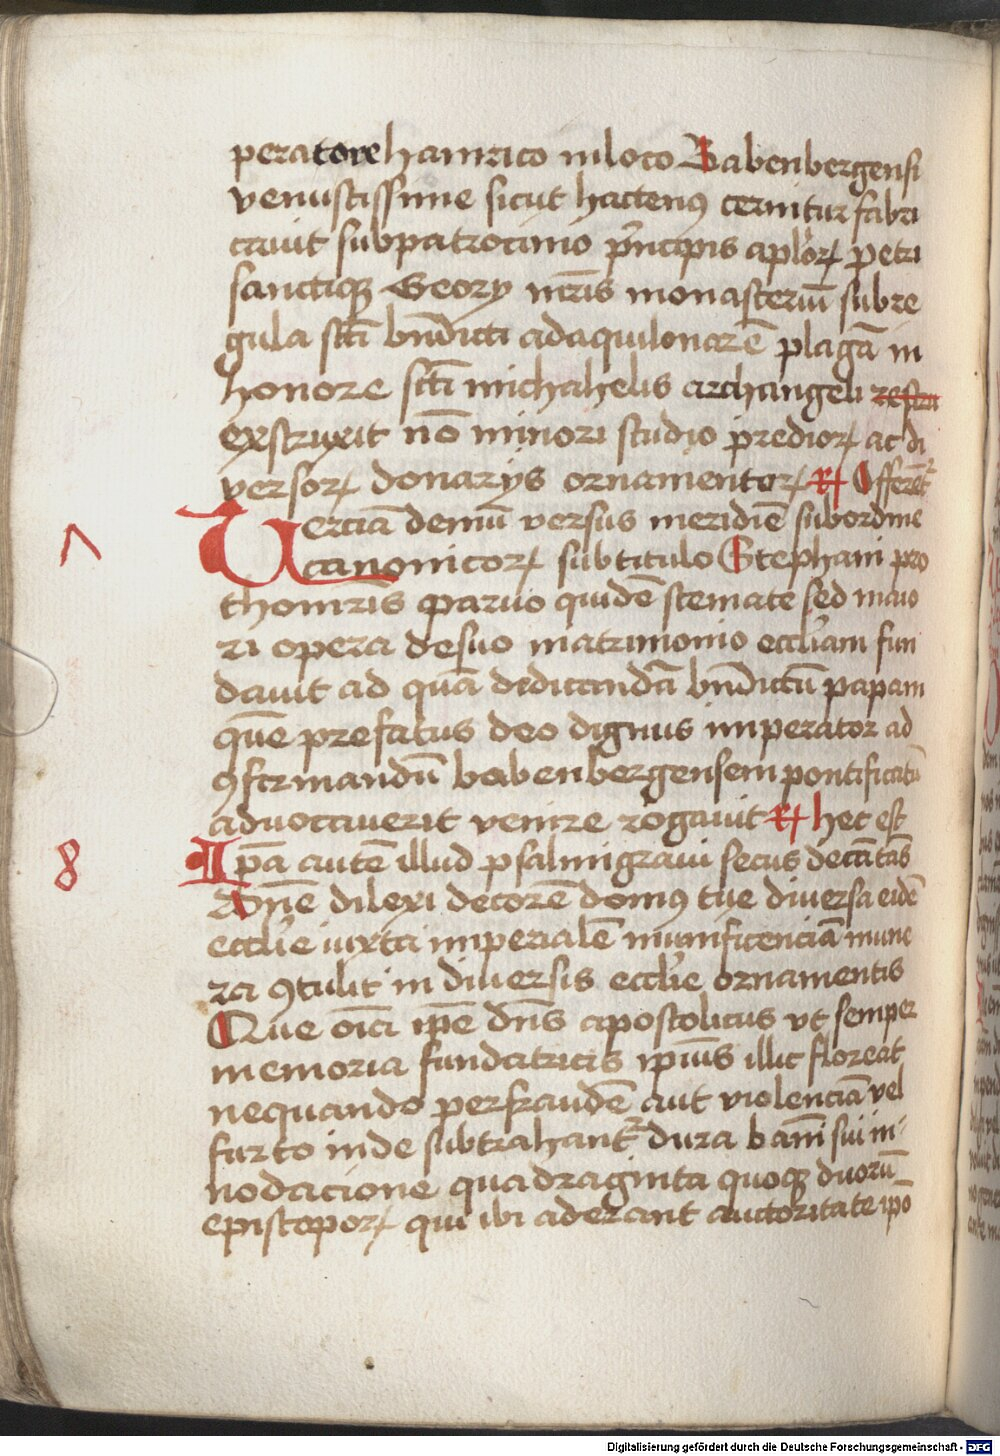 peratore hainrico inloco Babenbergensi
venustissime sicut hacten9 cernitur fabri
cauit subpatrocinio pͥncipis apl'oꝝ petri
sanctiqꝫ Georij nr̄is monasteriū subre
gula scti bn̄dicti adaquilonarē plagā in
honore scti michahelis archangeli restru
exstruxit nō minori studio predioꝝ ac di
versoꝝ donarijs ornamentorꝝ R Offerēt᷑
Terciā demū versus meridiē subordine
7
canonicoꝝ subtitulo Stephani pro
thomr̄is paruo quidē stemate sed maio
ri opera desuo matrimonio eccl'iam fun
dauit ad quā dedicandā bn̄dictū papam
quē prefatus deo dignus imperator ad
9firmandū babenbergensem pontificatū
aduocauerit venire rogauit R hec est
Ipā autē illud psalmigraui secus decātās
8
Dn̄e dilexi decorē dom9 tue diuersa eidē
eccl'ie iuxta imperialē munificenciā mune
ra 9tulit in diuersis eccl'ie ornamentis
Que oīa ip̄e dn̄s apostolicus vt semper
memoria fundatricis ipīus illic floreat
nequando perfraudē aut violenciā vel
furto inde subtrahant᷑ dura bānī sui in-
nodacione quadraginta quoqꝫ duorū
episcoporꝝ qui ibi aderant auctoritate ipō
Digitalisierung gefördert durch die Deutsche Forschungsgemeinschaft - DFG